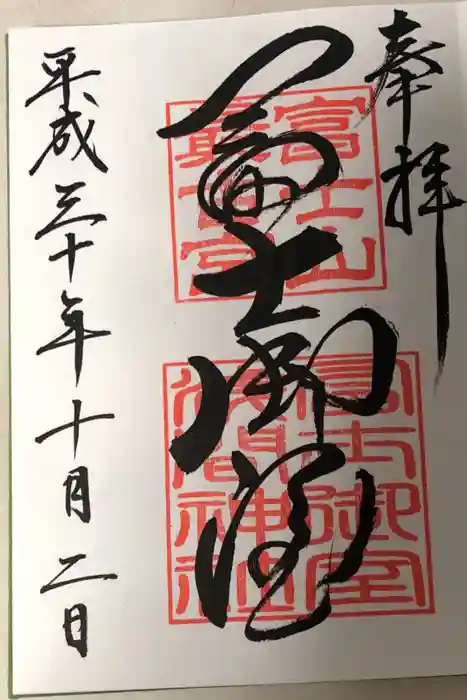 奉拝
富士山
最古宮
冨士御室
冨士御室
浅間神社
平成三十年十月二日